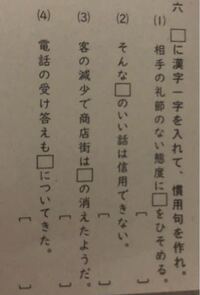 六 □に漢字一字を入れて、慣用句を作れ。
⑴ 相手の礼節のない態度に□をひそめる。
［　　］
⑵ そんな□のいい話は信用できない。
［　　］
⑶ 客の減少で商店街は□の消えたようだ。
［　　］
⑷ 電話の受け答えも□についてきた。
［　　］